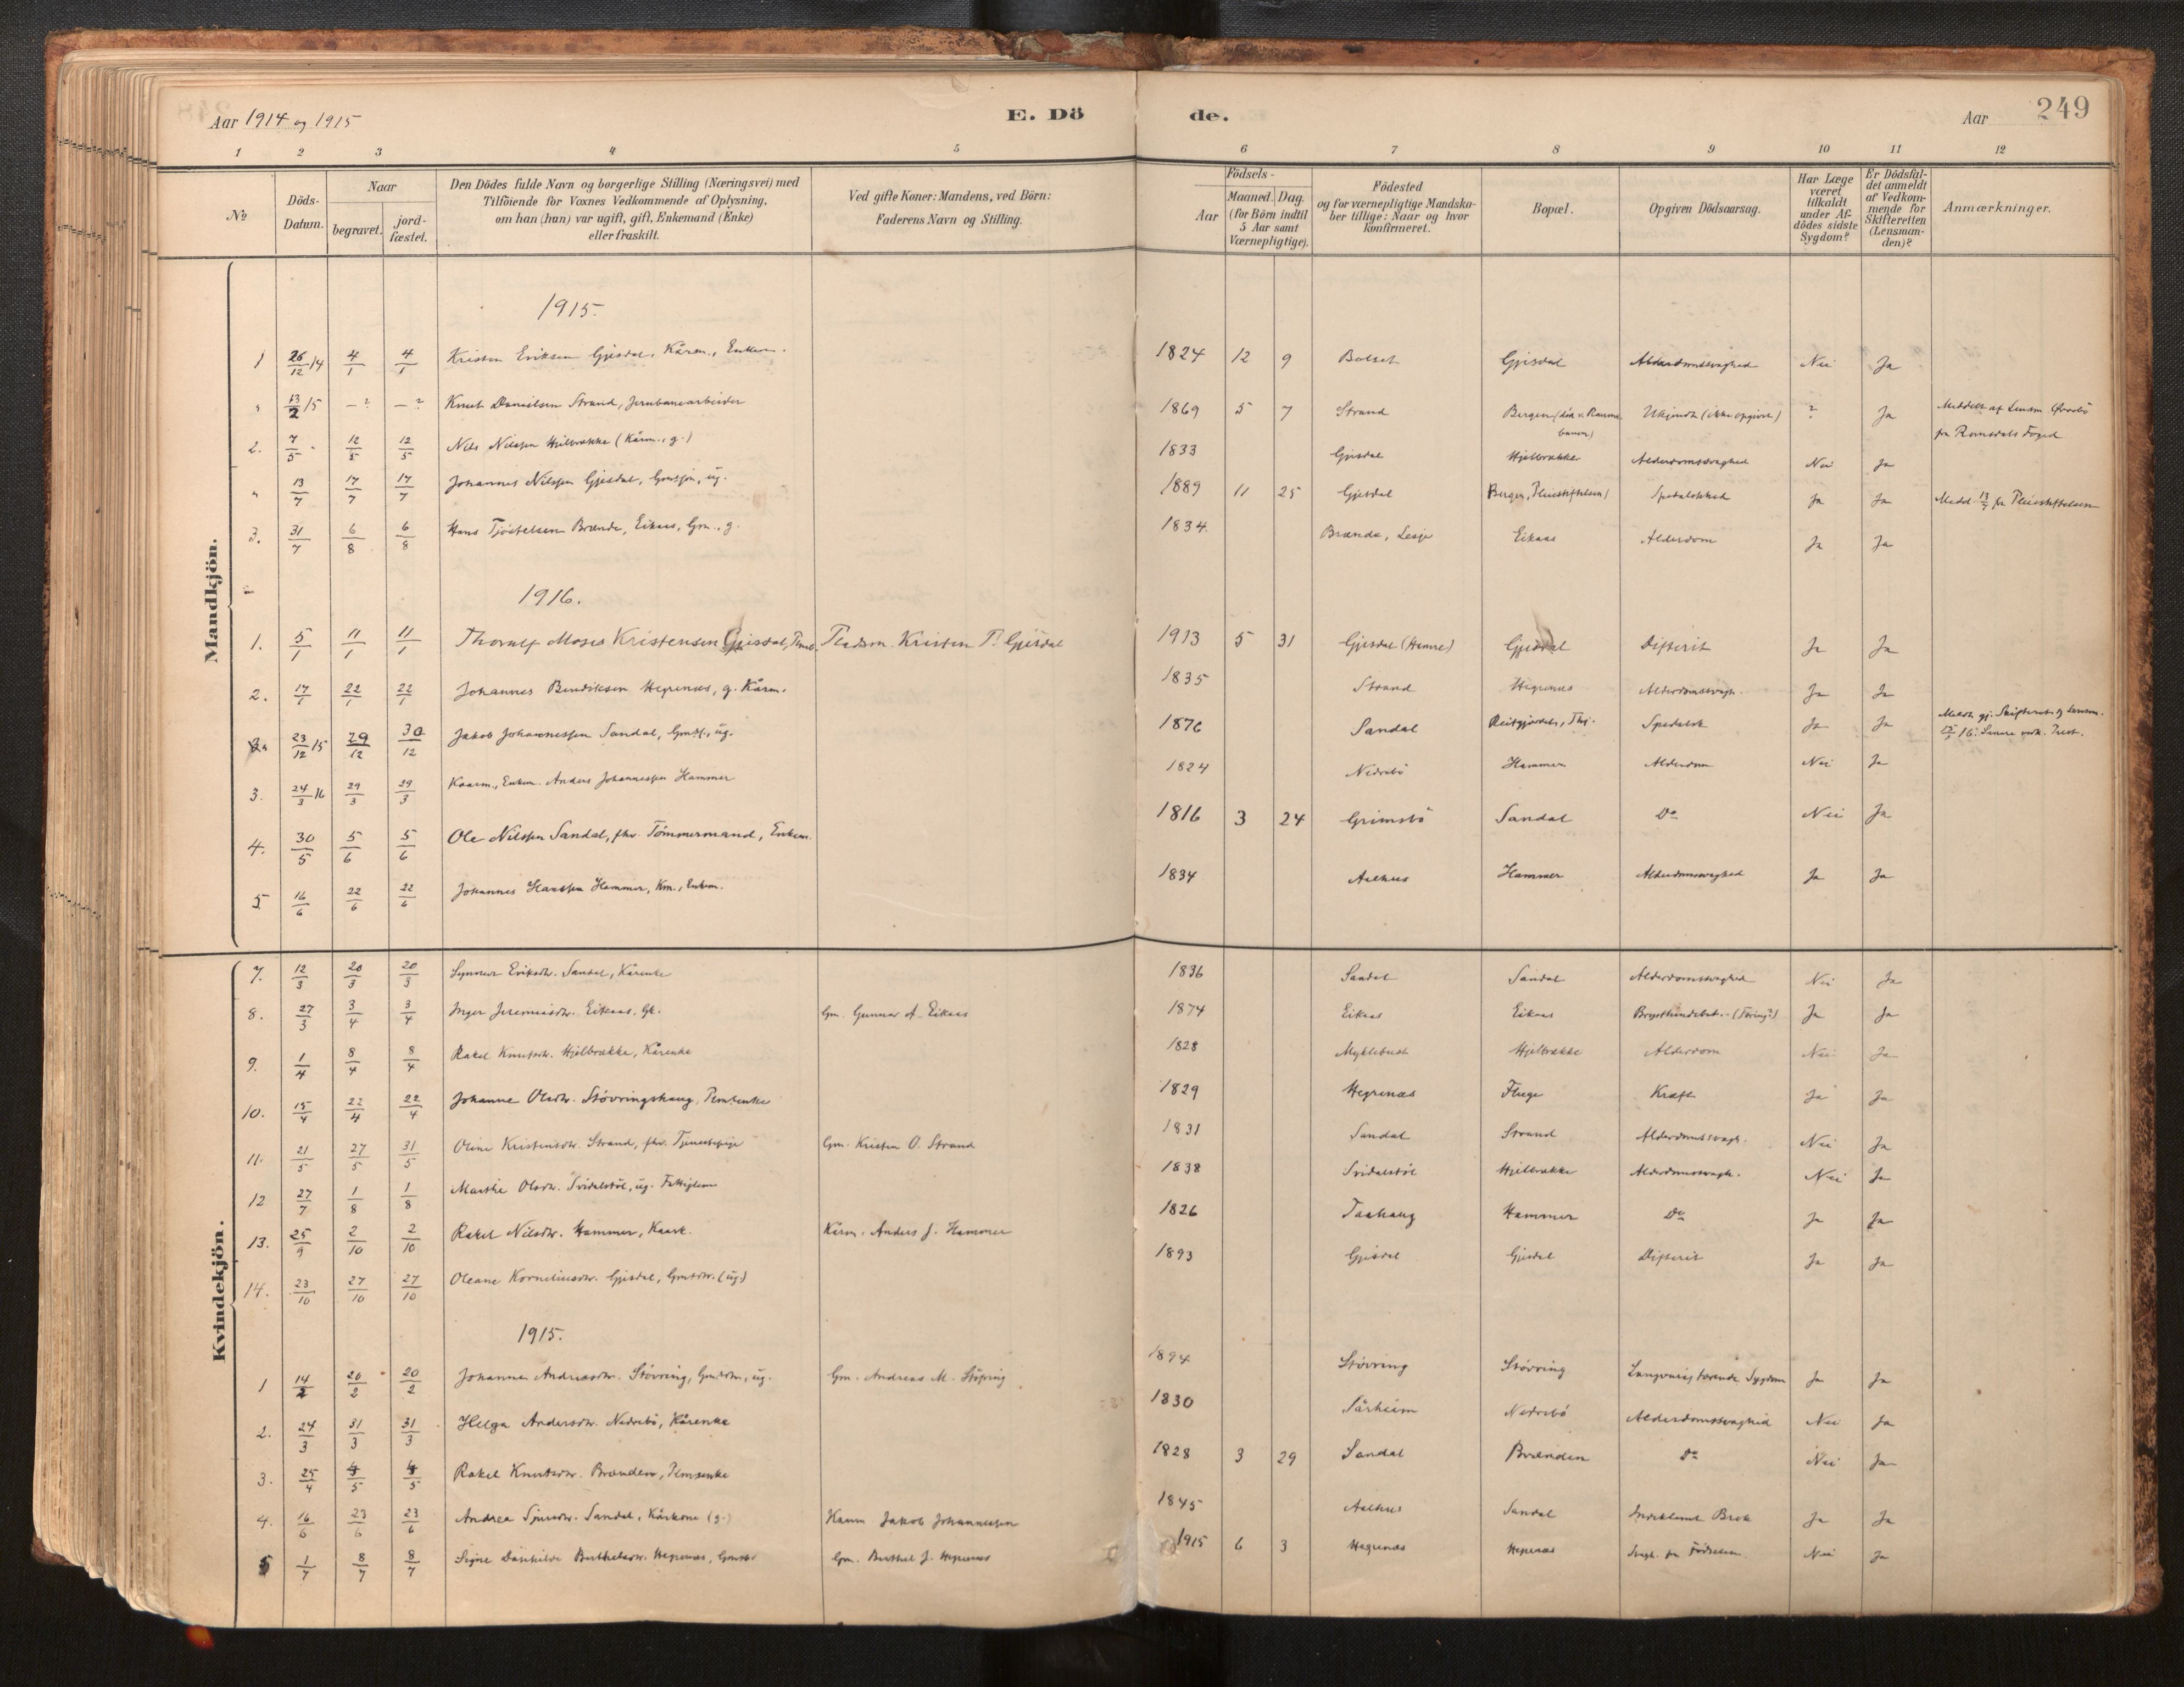 Aar 1914 og 1915
E. Dö
de.
Aar
249
1 2 3 4 5 6 7 8 9 10 11 12
№
Döds-Datum.
Naar
begravet.
jord-fæstet.
Den Dödes fulde Navn og borgerlige Stilling (Næringsvei) med
Tilföiende for Voxnes Vedkommende af Oplysning,
om han (hun) var ugift, gift, Enkemand (Enke)
eller fraskilt.
Ved gifte Koner: Mandens, ved Börn:
Faderens Navn og Stilling.
Födsels-
Aar
Maaned. Dag.
(for Börn indtil
5 Aar samt
Værnepligtige).
Födested
og for værnepligtige Mandska-
ber tillige: Naar og hvor
konfirmeret.
Bopæl.
Opgiven Dödsaarsag.
Har Læge
været
tilkaldt
under Af-
dödes sidste
Sygdom?
Er Dödsfal-
det anmeldt
af Vedkom-
mende for
Skifteretten
(Lensman-
den)?
Anmærkninger.
Mandkjön.
1915.
1 26/12 14 4/1 4/1 Kristen Eriksen Gjesdal, Kårm., Enkem. 1824 12 9 Bolset Gjesdal Alderdomssvaghed Nei Ja
" 13/2 15 – ? – ? Knut Danielsen Strand, Jernbanearbeider 1869 5 7 Strand Bergen Ukjendt (ikke opgivet) ? Ja Meddelt af Lensm
fra Romsdals Foged
2. 7/5 12/5 12/5 Nils Nilssen Hjelbrække (Kårm., g.) 1833 Gjesdal Hjelbrække Alderdomssvaghed Nei Ja
" 13/7 17/7 17/7 Johannes Nilssen Gjesdal, ug. 1889 11 25 Gjesdal Bergen, Pleiestiftelsen Spedalskhed Ja Ja Medd. 13/7 fra Pleiestiftelsen
3. 31/7 6/8 6/8 Hans Tjøstelsen Brænde, Eikaas, Gm., g. 1834 Brænde, Eikaas Alderdom Ja Ja
1916.
1. 5/1 11/1 11/1 Thoralf Moses Kristensen Gjesdal, Pladsm. Kristen P. Gjesdal 1913 5 31 Gjesdal (Hamre) Gjesdal Difterit Ja Ja
2. 17/1 22/1 22/1 Johannes Bendiksen Hegrenæs, g. Kårm. 1835 Strand Hegrenæs Alderdomssvagh. Ja Ja
23/12 15 29/12 30/12 Jakob Johannessen Sandal, ug. 1876 Sandal Reitgjerdet, Spedalsk Ja Ja
3. 24/3 16 29/3 29/3 Kaarm., Enkem. Anders Johannessen Hammer 1824 Nedrebö Hammer Alderdom Nei Ja
4. 30/5 5/6 5/6 Ole Nilssen Sandal, fhv. Tömmermand, Enkem. 1816 3 24 Grimsbö Sandal Do Nei Ja
5. 16/6 22/6 22/6 Johannes Hanssen Hammer, Km., Enkem. 1834 Aalhus Hammer Alderdomssvaghed Ja Ja
Kvindekjön.
7. 12/3 20/3 20/3 Synneva Eriksdtr. Sandal, Kårenke 1836 Sandal Sandal Alderdomssvaghed Nei Ja
8. 27/3 3/4 3/4 Inger Jeremiasdtr. Eikaas, Gk. Gm. Gunnar A. Eikaas 1874 Eikaas Eikaas (Tæring?) Ja Ja
9. 1/4 8/4 8/4 Rakel Knutsdtr. Hjelbrække, Kårenke 1828 Myklebust Hjelbrække Alderdom Nei Ja
10. 15/4 22/4 22/4 Johanne Olsdtr. Støvringshaug, 1829 Hegrenæs Fluge Kræft Ja Ja
11. 21/5 27/5 31/5 Oline Kristensdtr. Strand, fhv. Tjenestepige Gm. Kristen O. Strand 1831 Sandal Strand Alderdomssvagh. Nei Ja
12 27/7 1/8 1/8 Marthe Olsdtr. Svidalstöl, ug. Fattiglem 1838 Svidalstöl Hjelbrække Alderdomssvagh. Nei Ja
13. 25/9 2/10 2/10 Rakel Nilsdtr. Hammer, Kaark. Kårm. Anders J. Hammer 1826 Taahaug Hammer Do Ja Ja
14. 23/10 27/10 27/10 Oleane Korneliusdtr. Gjesdal, Gmsdtr. (ug.) 1893 Gjesdal Gjesdal Difterit Ja Ja
1915.
1 14/2 20/2 20/2 Johanne Andreasdtr. Støvring, Gmsdtr., ug. Gm. Andreas M. Støvring 1894 Støvring Støvring Sygdom Ja Ja
2. 24/3 31/3 31/3 Helga Andersdtr. Nedrebö, Kårenke 1830 Sårheim Nedrebö Alderdomssvaghed Nei Ja
3. 25/4 4/5 4/5 Rakel Knutsdtr. Brænden, 1828 3 29 Sandal Brænden Do Nei Ja
4. 16/6 23/6 23/6 Andrea Sjursdtr. Sandal, Kårkone (g.) Kaarm. Jakob Johannessen 1845 Aalhus Sandal Indeklemt Brok Ja Ja
5 1/7 8/7 8/7 Signe Berthelsdtr. Hegrenæs, Gm. Berthel J. Hegrenæs 1915 6 3 Hegrenæs Hegrenæs Svagh. fra Födselen Nei Ja